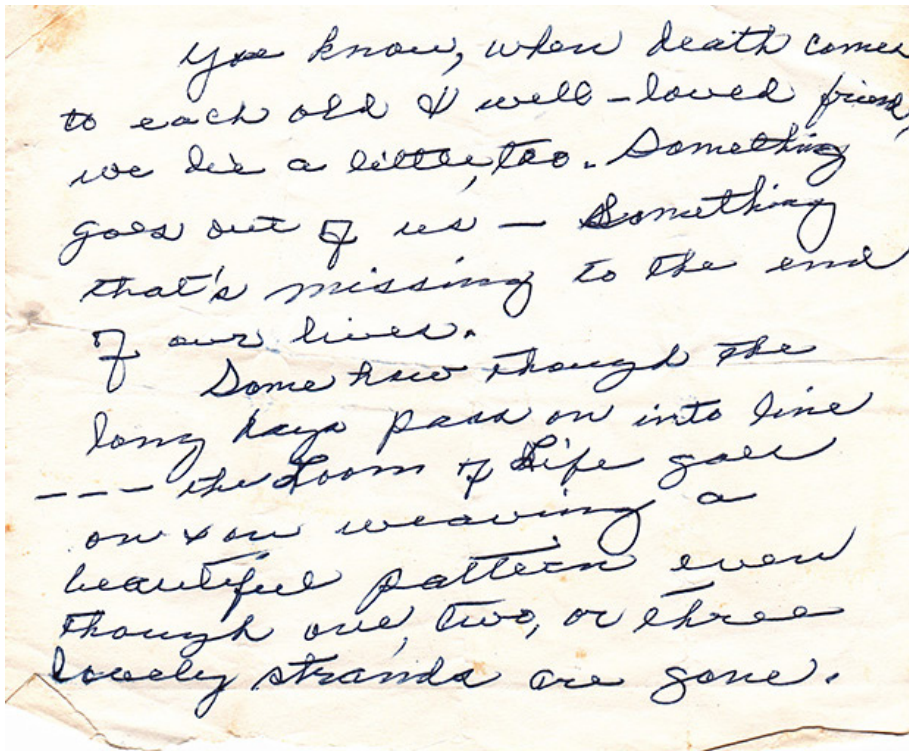 You know, when death comes
to each old & well-loved friend,
we die a little, too. Something
goes out of us — Something
that's missing to the end
of our lives.
Some how though the
long days pass on into line
--- the Loom of Life goes
on & on weaving a
beautiful pattern even
though one, two, or three
lovely strands are gone.